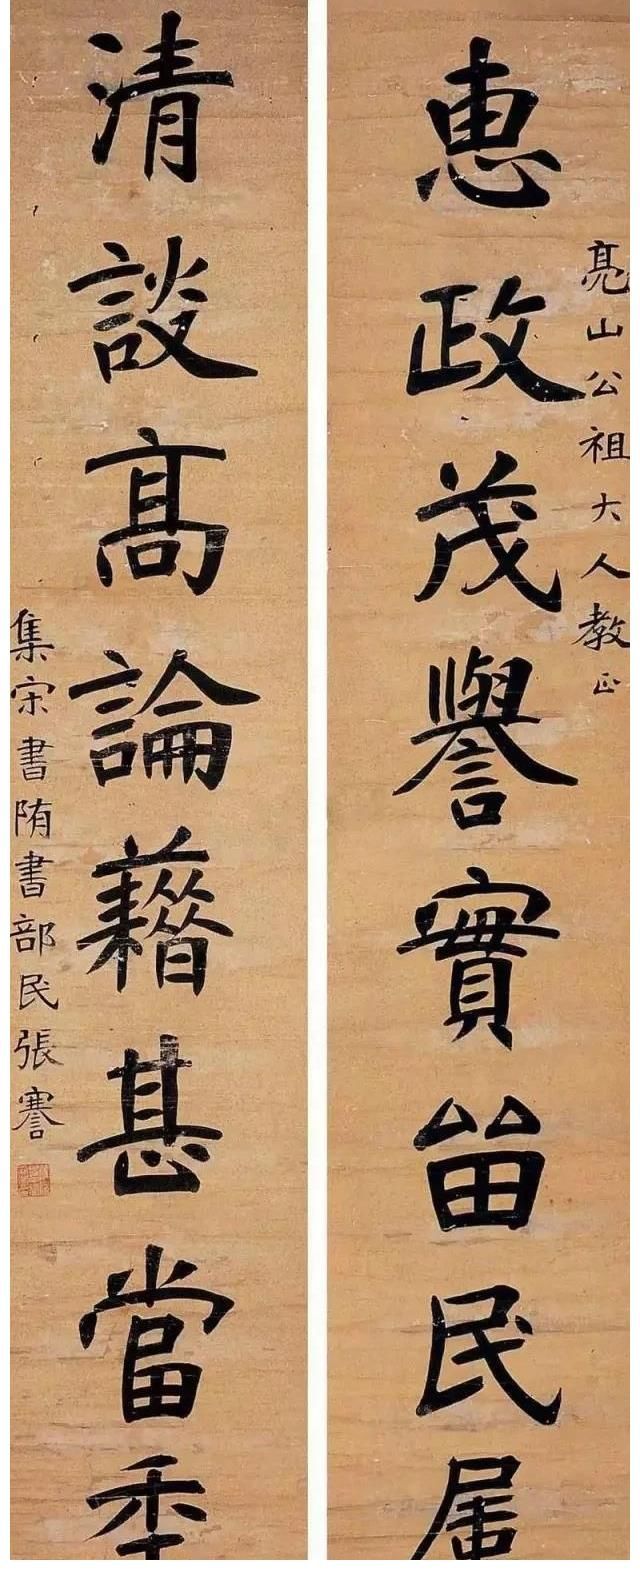 亮山公祖大人教正
惠政茂譽實留民属
清談髙論藉甚當年
集宋書陏書部民張謇